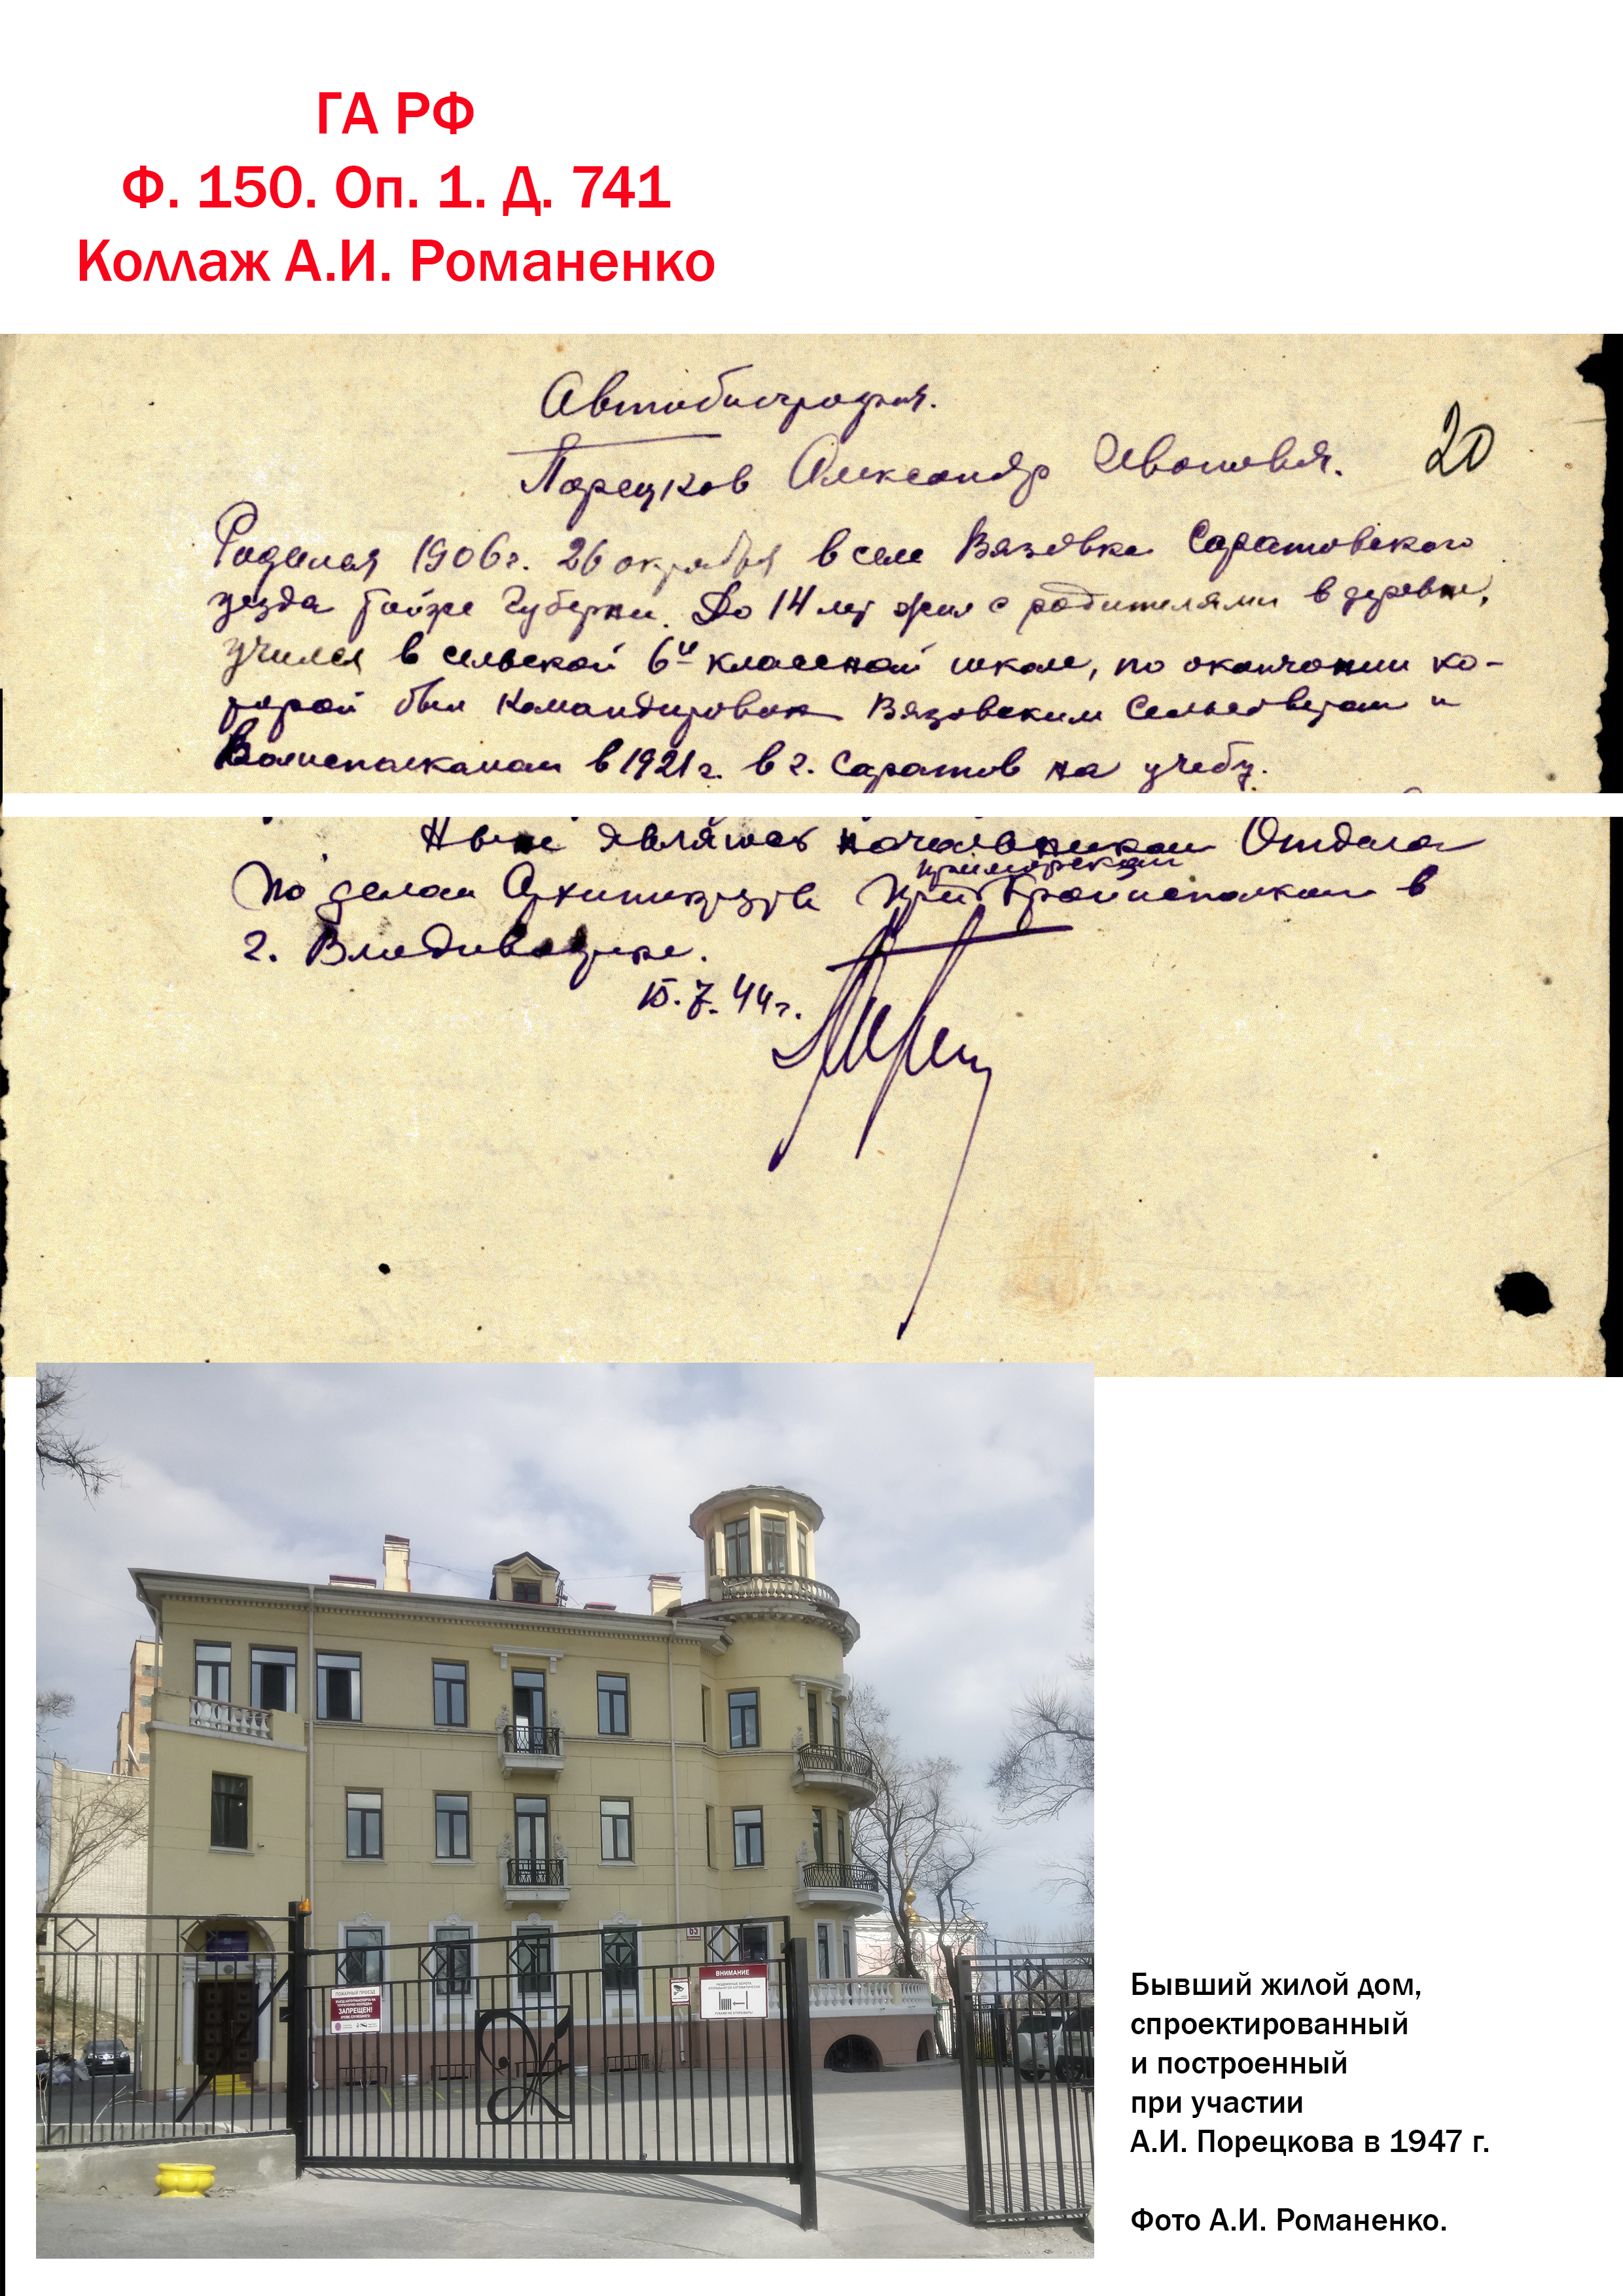 ГА РФ
Ф. 150. Оп. 1. Д. 741
Коллаж А.И. Романенко
Автобиография.
Порецков Александр Иванович.
20
Родился 1906 г. 26 октября в селе Вязовке Саратовского
уезда той же губерни. До 14 лет жил с родителями в деревне,
учился в сельской 6и классной школе, по окончании ко-
торой был командирован Вязовским Сельсоветом и
Волисполкомом в 1921 г. в г. Саратов на учебу.
Ныне являюсь начальником Отдела
приморском
по делам Архитектуры при Крайисполкоме в
г. Владивостоке.
15.7.44 г.
65
ПОЖАРНЫЙ ПРОЕЗД
ЗАПРЕЩЕН!
ВНИМАНИЕ
Бывший жилой дом,
спроектированный
и построенный
при участии
А.И. Порецкова в 1947 г.
Фото А.И. Романенко.